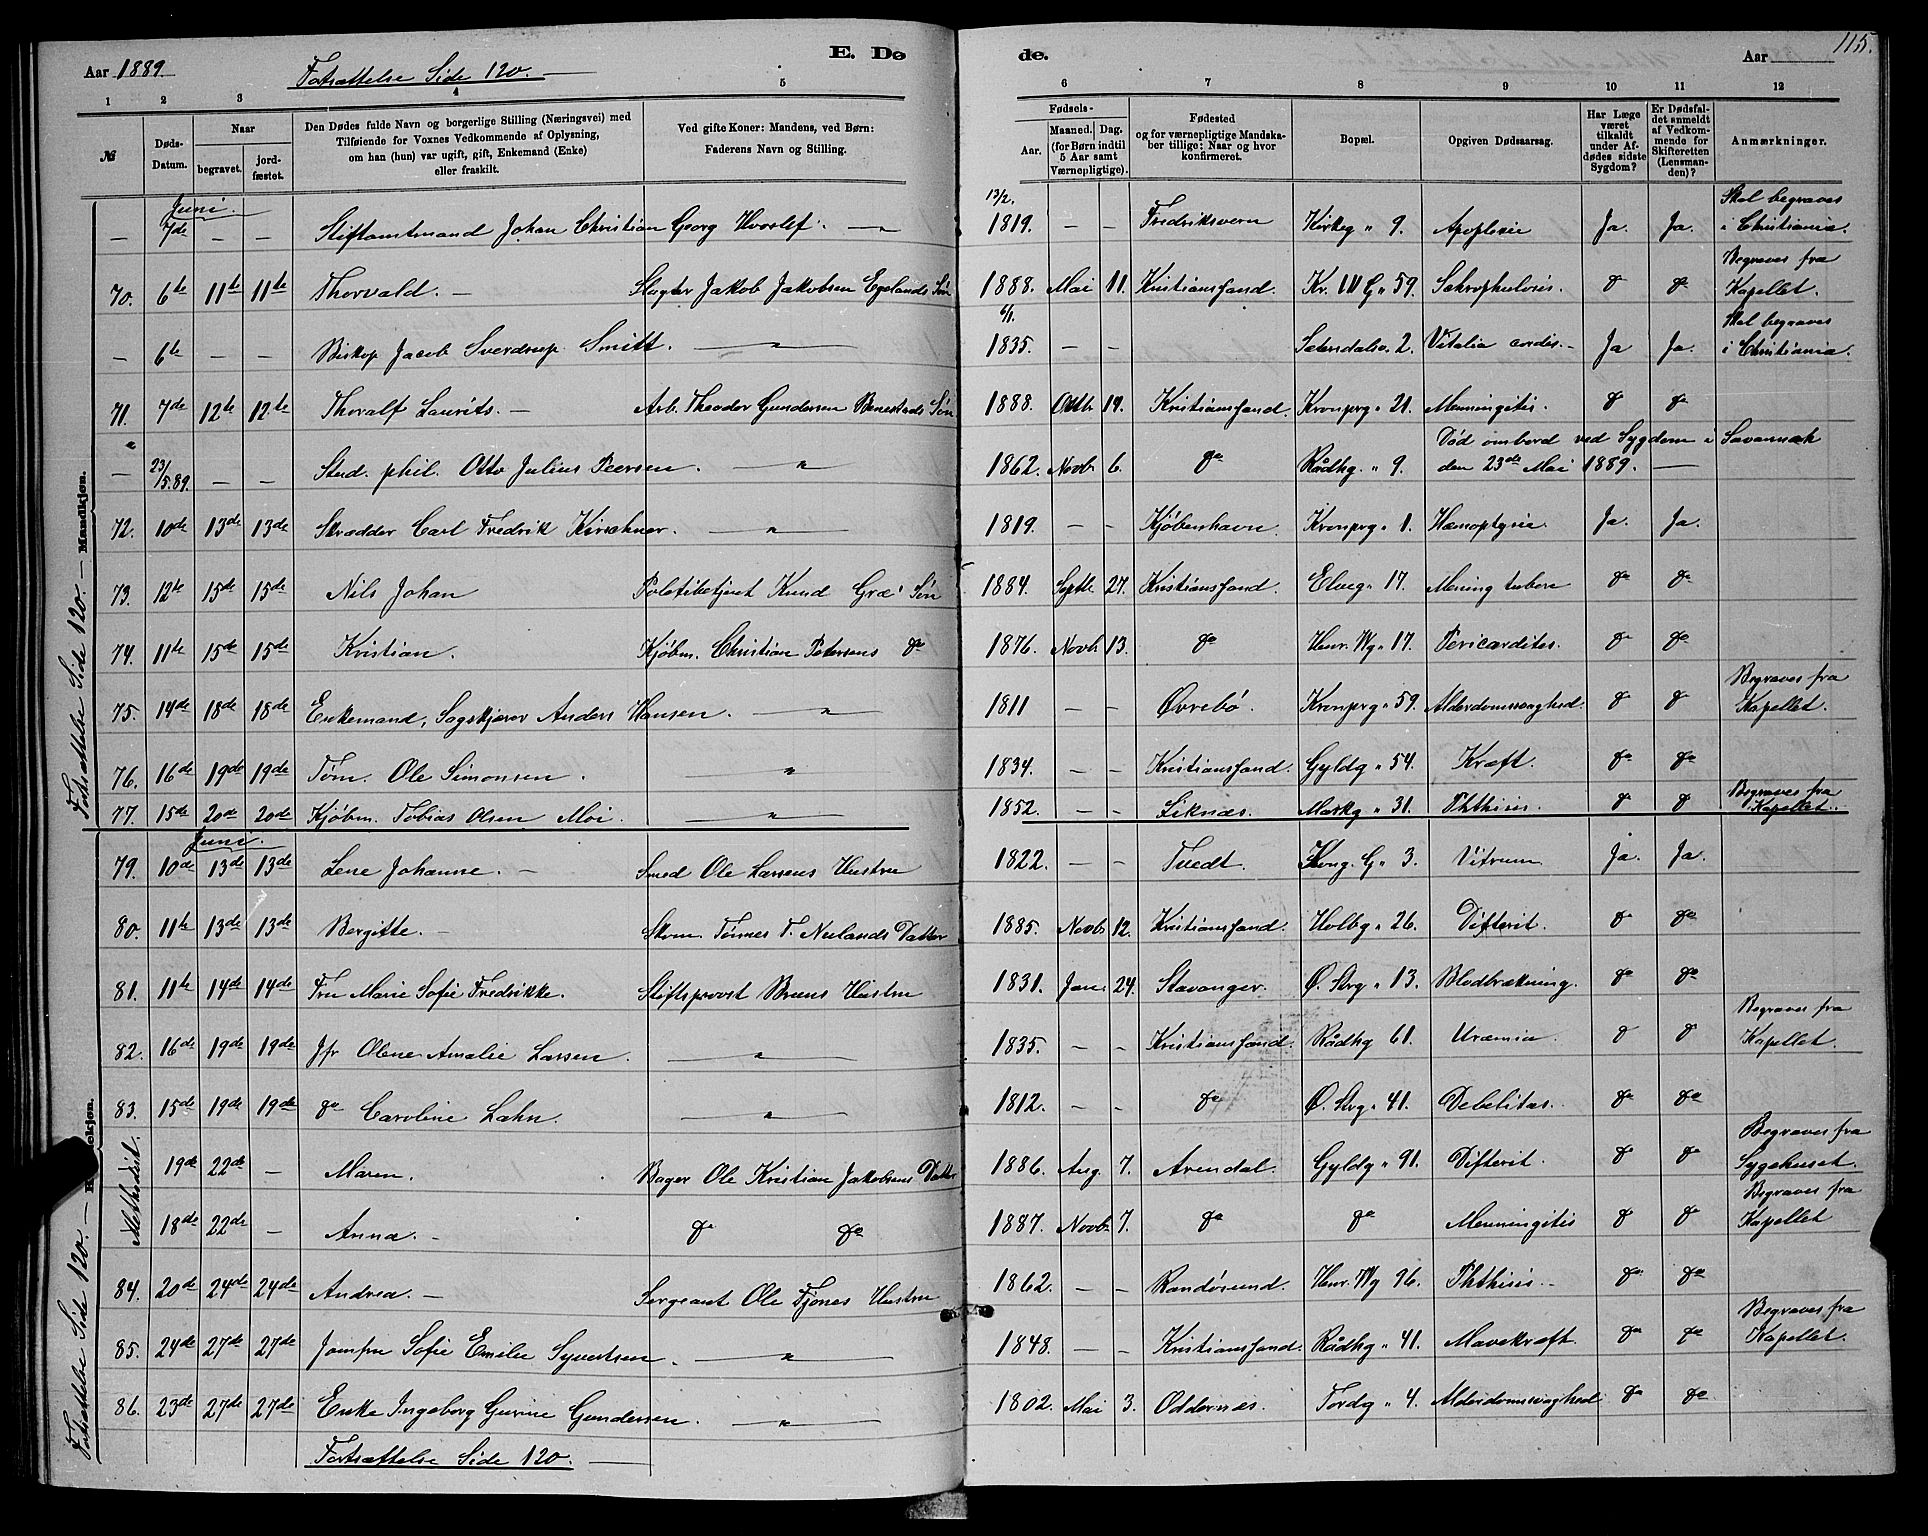 Aar 1889. Fortsættelse Side 120. — E. Dø de. Aar 115.
1 2 3 4 5 6 7 8 9 10 11 12
№ Døds-Datum. Naar begravet. jord-fæstet. Den Dødes fulde Navn og borgerlige Stilling (Næringsvei) med Tilføiende for Voxnes Vedkommende af Oplysning, om han (hun) var ugift, gift, Enkemand (Enke) eller fraskilt. Ved gifte Koner: Mandens, ved Børn: Faderens Navn og Stilling. Fødsels- Aar. Maaned. Dag. (for Børn indtil 5 Aar samt Værnepligtige). Fødested og for værnepligtige Mandskaber tillige: Naar og hvor konfirmeret. Bopæl. Opgiven Dødsaarsag. Har Læge været tilkaldt under Afdødes sidste Sygdom? Er Dødsfaldet anmeldt af Vedkommende for Skifteretten (Lensmanden)? Anmærkninger.
Fortsættelse Side 120. — Mandkjøn.
Juni.
— 7de — — Stiftamtmand Johan Christian Georg Hvoslef. — 13/2. 1819. — — Fredriksvern Kirkeg " 9. Apoplexie Ja. Ja. Skal begraves i Christiania.
70. 6te 11te 11te Thorvald. — Slagter Jakob Jakobsen Egelands Søn 1888. Mai 11. Kristianssand. Kr. IV G " 59. Schrophulosis. do do Begraves fra Kapellet.
— 6te — — Biskop Jacob Sverdrup Smitt. — " — 6/1. 1835. — — Sætersdalsv. 2. Vitalia cordis. — Ja Ja. Skal begraves i Christiania.
71. 7de 12te 12te Thoralf Laurits. — Arb. Theodor Gundersen Benestads Søn 1888. Oktb. 19. Kristianssand. Kronprg " 21. Menningitis. do do
" — 23/5.89. — — Stud. phil. Otto Julius Peersen. — " — 1862. Novb. 6. do Rådhg. " 9. Død ombord ved Sygdom i Savannah den 23de Mai 1889. —
72. 10de 13de 13de Skrædder Carl Fredrik Kirschner. — " — 1819. — — Kjøbenhavn. Kronprg " 1. Hæmoptysie. Ja. Ja.
73. 12te 15de 15de Nils Johan Politibetjent Knud Græ's Søn 1884. Septb. 27. Kristianssand. Elveg " 17. Mening tuberc do do
74. 11te 15de 15de Kristian. Kjøbm. Christian Petersens do 1876. Novb. 13. do Henr. Wg " 17. Pericarditis. do do
75. 14de 18de 18de Enkemand, Sagskjærer Anders Hansen. — " — 1811 — — Øvrebø. Kronprg " 59. Alderdomssvaghed. do do Begraves fra Kapellet.
76. 16de 19de 19de Tøm. Ole Simonsen. — " — 1834. — — Kristianssand. Gyldg " 54. Kræft. do do
77. 15de 20de 20de Kjøbm. Tobias Olsen Moi. — " — 1852. — — Liknæs. Markg " 31. Phthisis. do do Begraves fra Kapellet.
Juni.
79. 10de 13de 13de Lene Johanne. — Smed Ole Larsens Hustru 1822. — — Tvedt. Kong. G " 3. Vitrum Ja. Ja.
80. 11te 13de 13de Bergitte. — Skom. Tønnes T. Nulands Datter 1885. Novb. 12. Kristianssand. Holbg " 26. Difterit. do do
81. 11te 14de 14de Fru Marie Sofie Fredrikke. Stiftsprovst Bruns Hustru 1831. Jan. 24. Stavanger. Ø. Strg " 13. Blodbrækning. do do
82. 16de 19de 19de Jfr Olene Amalie Larsen. — " — 1835. — — Kristianssand. Rådhg 61. Uræmia. do do Begraves fra Kapellet.
83. 15de 19de 19de do Caroline Lahn. — " — 1812. — — do Ø. Strg " 41. Debelitas. do do
Methodist. 19de 22de — Maren. Bager Ole Kristian Jakobsens Datter 1886. Aug. 7. Arendal. Gyldg " 91. Difterit. do do Begraves fra Sygehuset.
18de 22de — Anna. — do do 1887. Novb. 7. do do Menningitis do do Begraves fra Kapellet
84. 20de 24de 24de Andrea. — Sergeant Ole Fjones Hustru 1862. — — Randøsund. Henr. Wg 96. Phthisis. — do do
85. 24de 27de 27de Jomfru Sofie Emilie Syvertsen. — " — 1848. — — Kristianssand. Rådhg " 41. Mavekræft. do do Begraves fra Kapellet.
86. 23de 27de 27de Enke Ingeborg Gurine Gundersen. — " — 1802. Mai 3. Oddernes. Tordg " 4. Alderdomssvaghed do do
Fortsættelse Side 120. —
Fortsættelse Side 120. — ekjøn.